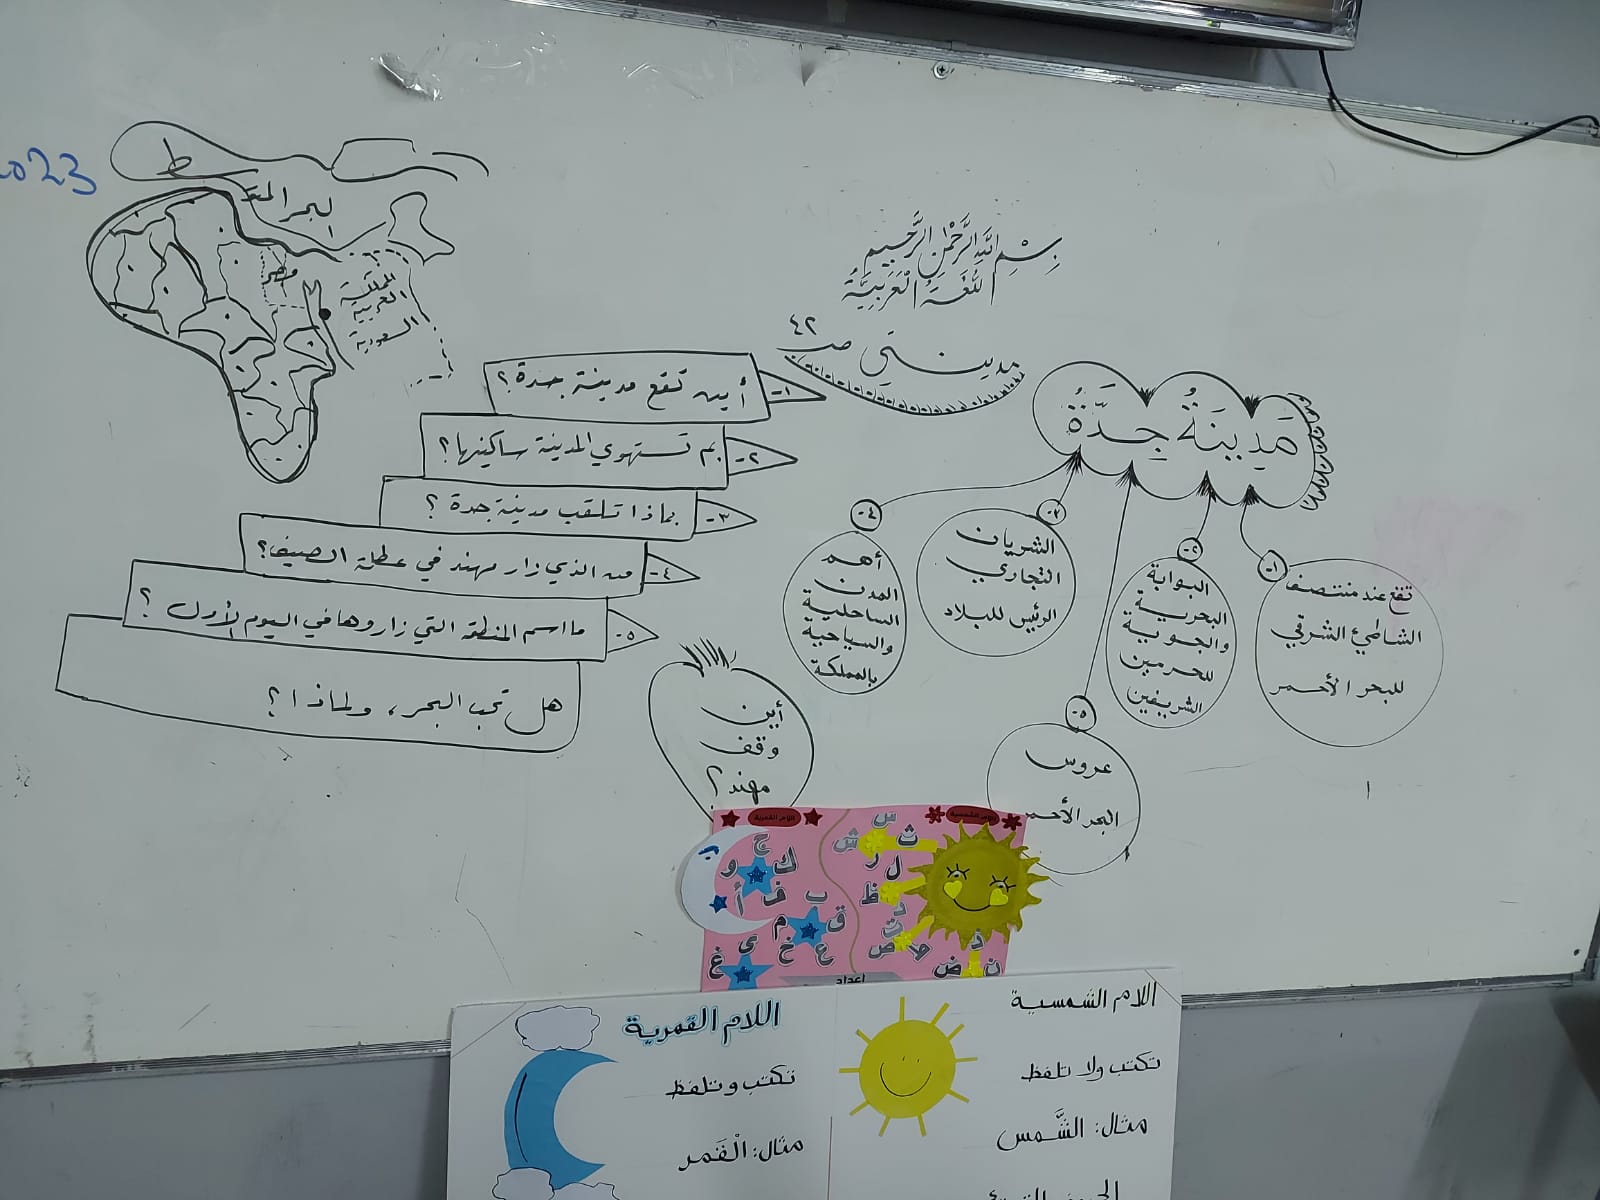 2023
ط
البحر المتو
مصر
المملكة
العربية
السعودية
بِسْمِ اللَّهِ الرَّحْمَٰنِ الرَّحِيمِ
اللُّغَةُ الْعَرَبِيَّةُ
مدينتي ص ٤٢
مَدِينَةُ جِدَّةُ
١-
تقع عند منتصف
الشاطئ الشرقي
للبحر الأحمر
٢-
البوابة
البحرية
والجوية
للحرمين
الشريفين
٣-
الشريان
التجاري
الرئيس للبلاد
٤-
أهم
المدن
الساحلية
والسياحية
بالمملكة
٥-
عروس
البحر الأحمر
١- أين تقع مدينة جدة؟
٢- بم تستهوي المدينة ساكنيها؟
٣- بماذا تلقب مدينة جدة ؟
٤- من الذي زار مهند في عطلة الصيف؟
٥- ما اسم المنطقة التي زاروها في اليوم الأول ؟
هل تحب البحر، ولماذا ؟
أين
وقف
مهند؟
اللام الشمسية
س
ث
ش
ر
ل
ظ
د
ت
ص
ط
ذ
ض
ن
اللام القمرية
ج
ك
و
أ
ف
ب
ق
م
خ
ع
ي
غ
إعداد
اللام الشمسية
تكتب ولا تلفظ
مثال: الشَّمس
اللام القمرية
تكتب وتلفظ
مثال: الْقَمر